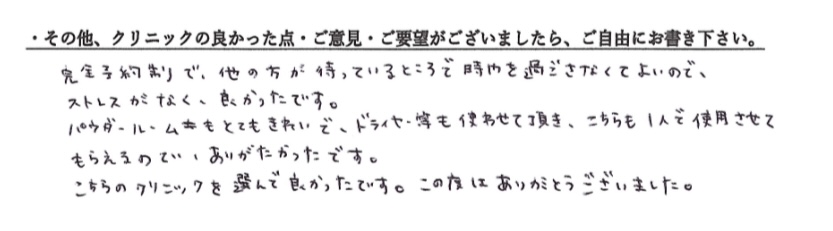 ・その他、クリニックの良かった点・ご意見・ご要望がございましたら、ご自由にお書き下さい。
完全予約制で、他の方が待っているところで時間を過ごさなくてよいので、
ストレスがなく、良かったです。
パウダールームもとてもきれいで、ドライヤー等も使わせて頂き、こちらも1人で使用させて
もらえるので、ありがたかったです。
こちらのクリニックを選んで良かったです。この度はありがとうございました。